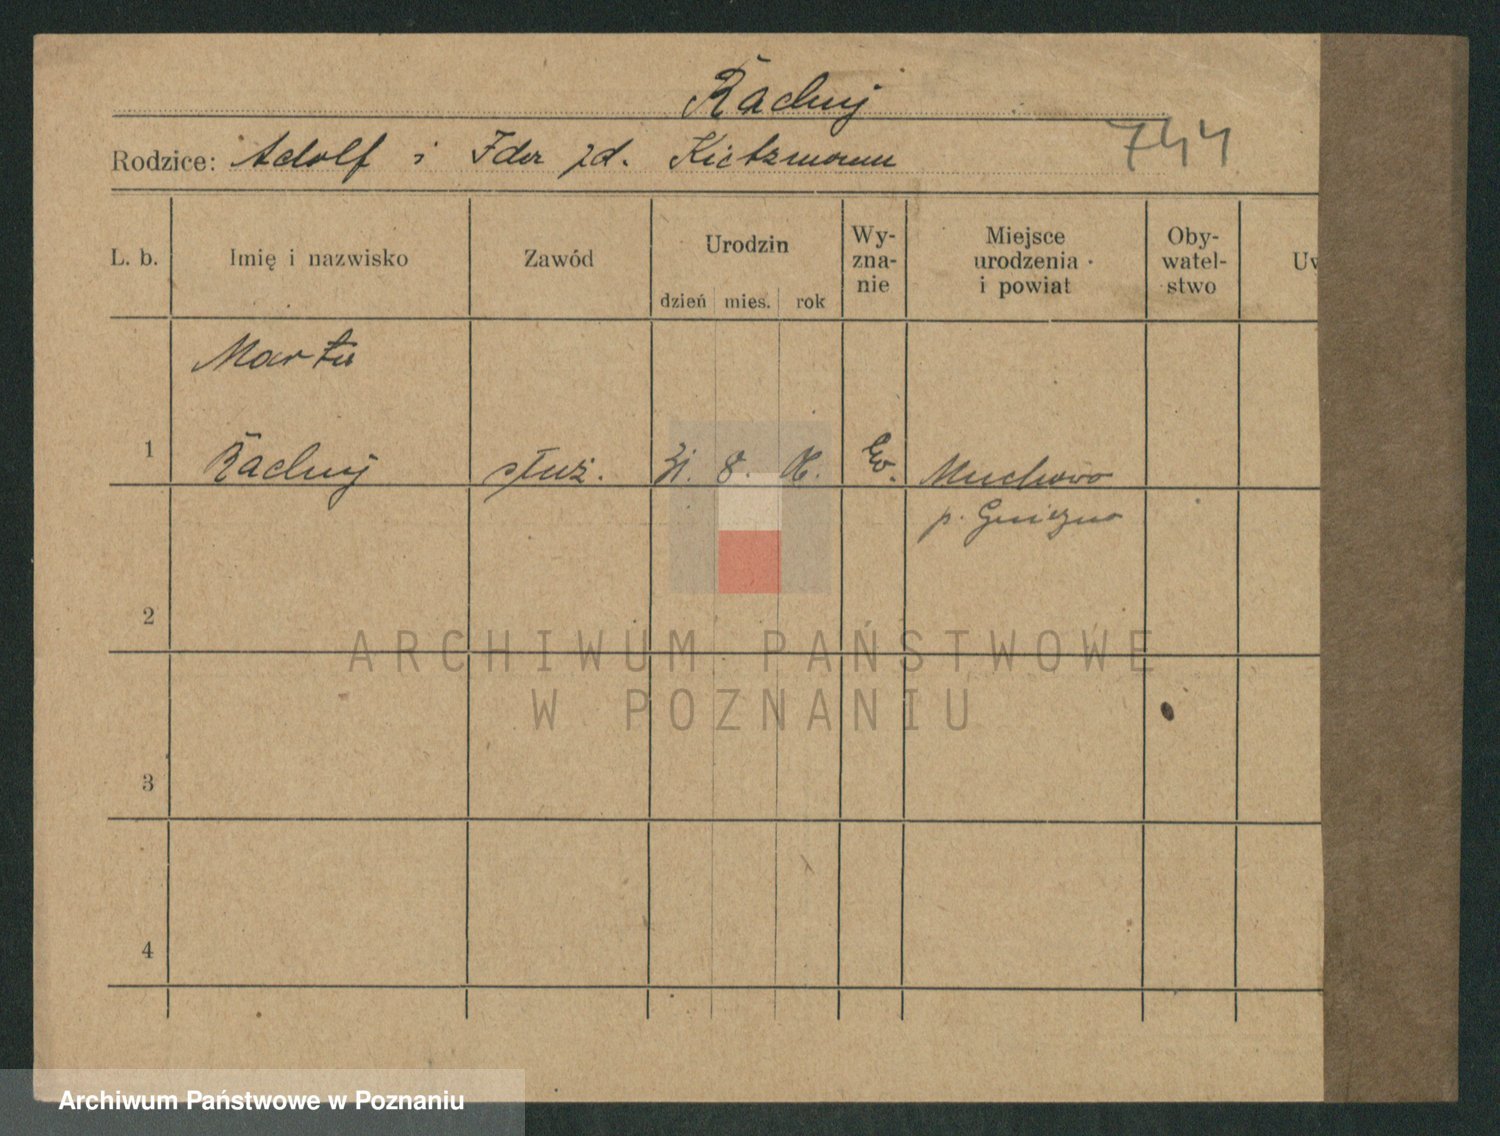 Rachuj
744
Rodzice: Adolf i Ida zd. Kietzmann
L. b. Imię i nazwisko Zawód Urodzin dzień mies. rok Wy-
zna-
nie Miejsce
urodzenia
i powiat Oby-
watel-
stwo
Marta
1 Rachuj służ. 31. 8. 06. Ew. Muchowo
p. Gniezno
2
ARCHIWUM PAŃSTWOWE
W POZNANIU
3
4
Archiwum Państwowe w Poznaniu